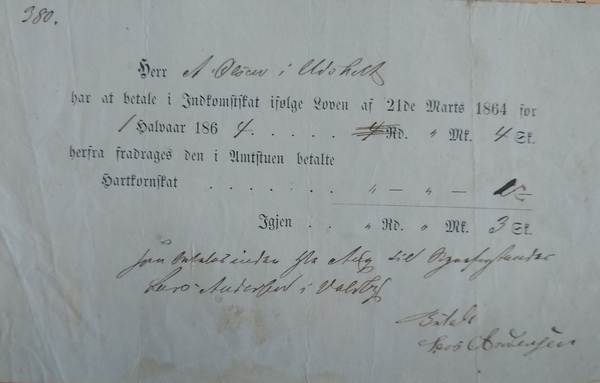 380.
Herr A Olsen i Udsholt
har at betale i Indkomstskat ifølge Loven af 21de Marts 1864 for
1 Halvaar 1864. . . . . . 4 Rd. " Mk. 4 Sk.
herfra fradrages den i Amtstuen betalte
Hartkornskat . . . . . . . " — " — 1 —
Igjen . . " Rd. " Mk. 3 Sk.
inden til Sognefogden
Lars Andersen i
Betalt
Lars Andersen